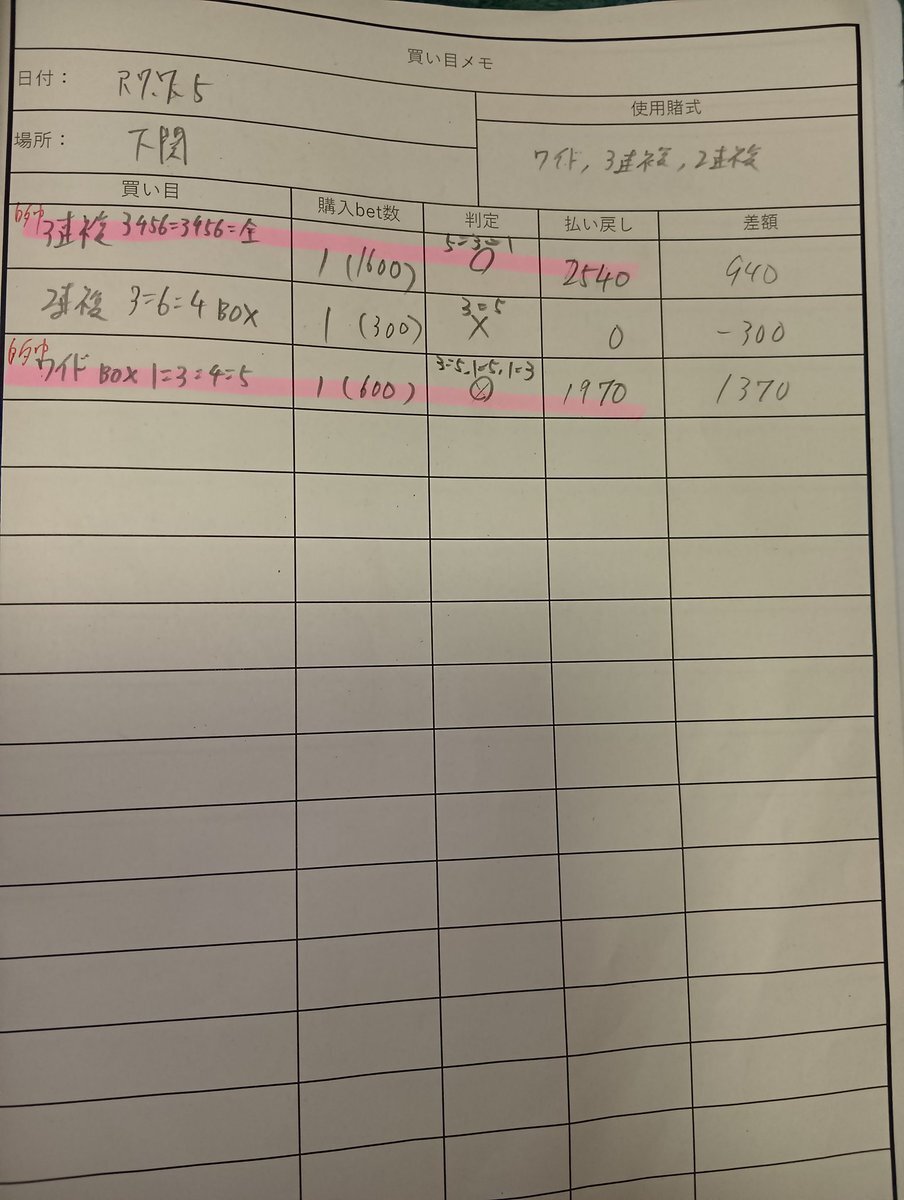 買い目メモ
日付： R7.7.5
使用賭式
場所： 下関
ワイド, 3連複, 2連複
買い目 購入bet数 判定 払い戻し 差額
的中
3連複 3456=3456=全 1 (1600) 5=3=1 〇 2540 940
2連複 3=6=4 BOX 1 (300) 3=5 × 0 -300
的中
ワイド BOX 1=3=4=5 1 (600) 3=5, 1=5, 1=3 1970 1370